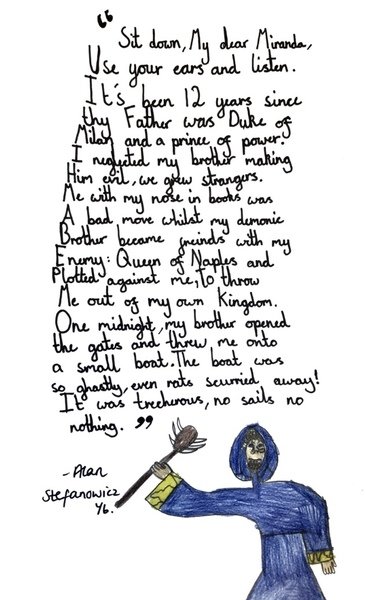 "Sit down, My dear Miranda,
Use your ears and listen.
It's been 12 years since
thy Father was Duke of
Milan and a prince of power.
I neglected my brother making
Him evil, we grew strangers.
Me with my nose in books was
A bad move whilst my demonic
Brother became freinds with my
Enemy: Queen of Naples and
Plotted against me, to throw
Me out of my own Kingdom.
One midnight, my brother opened
the gates and threw me onto
a small boat. The boat was
so ghastly, even rats scurried away!
It was trecherous, no sails no
nothing."
- Alan
Stefanowicz
Y6.